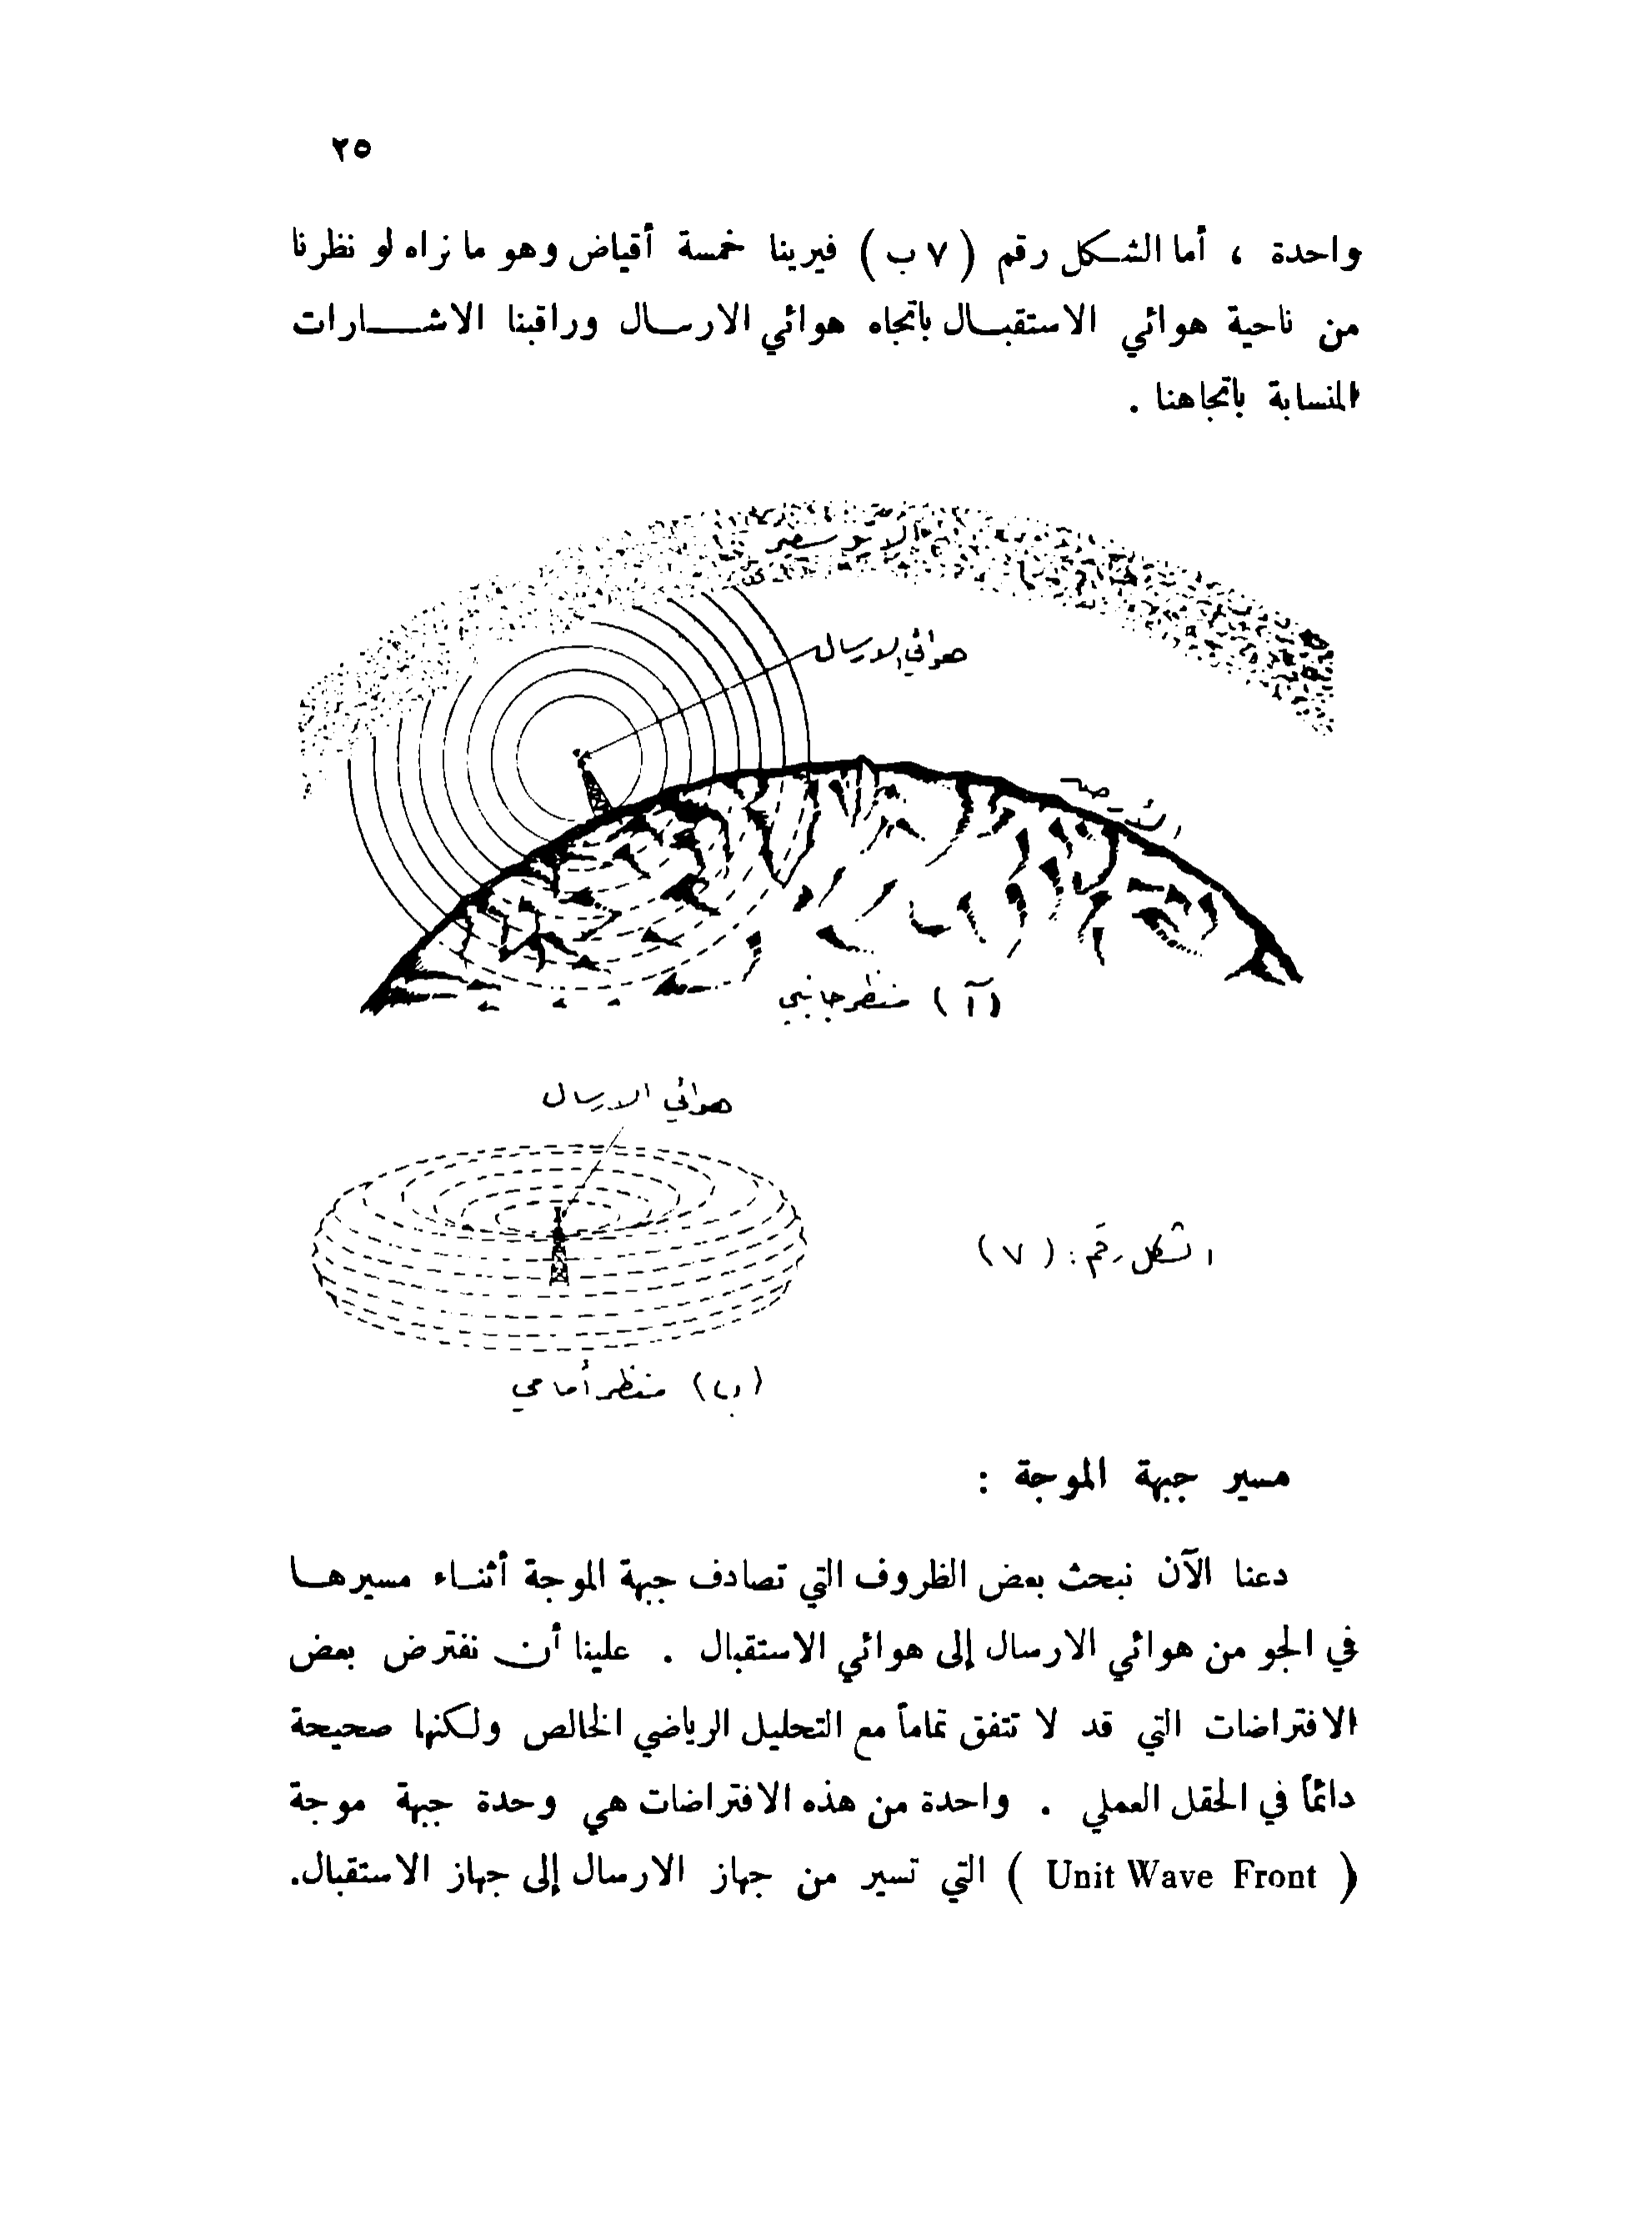 ٢٥
واحدة ، أما الشكل رقم ( ٧ ب ) فيرينا خمسة أقياض وهو ما نراه لو نظرنا
من ناحية هوائي الاستقبال باتجاه هوائي الارسال وراقبنا الاشارات
المنسابة باتجاهنا .
هوائي الارسال
( آ ) منظر جانبي
هوائي الارسال
الشكل رقم : ( ٧ )
(ب) منظر أمامي
مسير جبهة الموجة :
دعنا الآن نبحث بعض الظروف التي تصادف جبهة الموجة أثناء مسيرها
في الجو من هوائي الارسال إلى هوائي الاستقبال . علينا أن نفترض بعض
الافتراضات التي قد لا تتفق تماماً مع التحليل الرياضي الخالص ولكنها صحيحة
دائماً في الحقل العملي . واحدة من هذه الافتراضات هي وحدة جبهة موجة
( Unit Wave Front ) التي تسير من جهاز الارسال إلى جهاز الاستقبال.